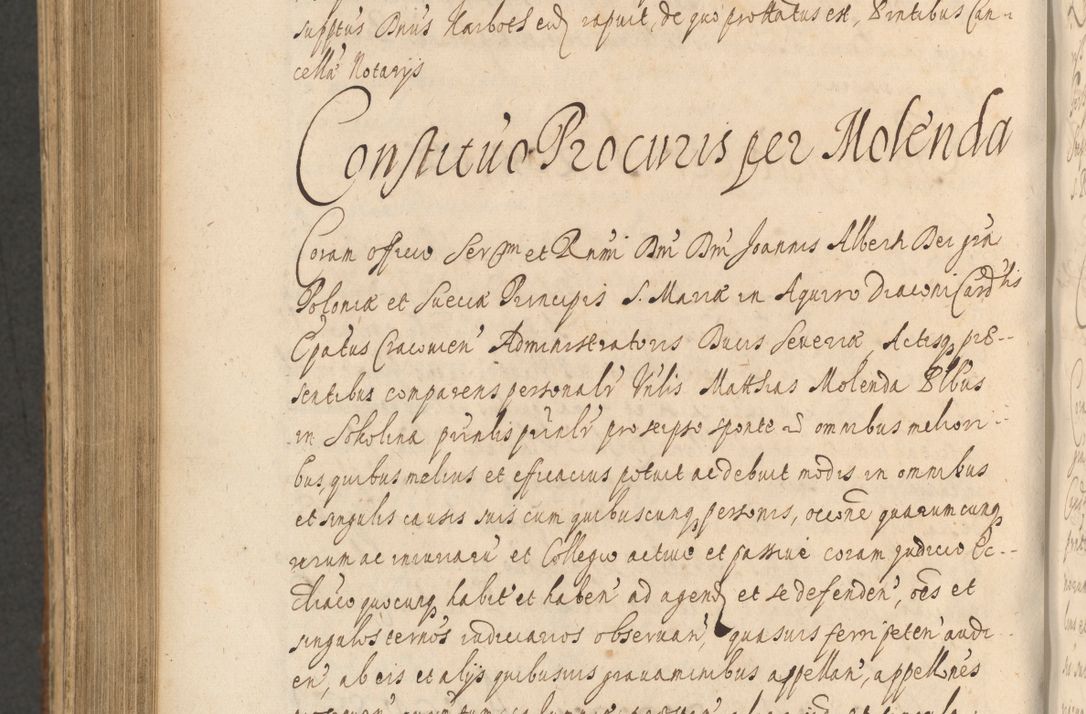 supptus Dnus Karboth eid rapuit, de quo prottatus est, Pntibus Can-
cellæ Notarijs
Constitu͞o Procuris per Molenda
Coram officio Ser͞mi et R͞nmi D͞ni D͞ni Joannis Alberti Dei gr͞a
Poloniæ et Sueciæ Principis S. Mariæ in Aquiro Diaconi Cardlis
Ep͞atus Cracovien͞ Administratoris Ducis Severiæ, Actisq præ-
sentibus comparens personalr͞ Vnlis Matthias Molenda Plbus
in Sokolina prinlis prinlr͞ pro se ipso sponte ac omnibus meliori-
bus, quibus melius et efficacius potuit ac debuit modis in omnibus
et singulis causis suis cum quibuscunq personis, occ͞one quarumcunq
rerum ac iniuriaru͞ et Collegio active et passive coram judicio Ec-
cl͞iaco quocunq habit͞ et haben͞ ad agend et se defenden͞, o͞es et
singulos term͞os iudiciarios observan͞, quasvis ferri peten͞ audi-
en͞, ab eis et alijs quibusvis gravaminibus appellan͞, appell͞ones